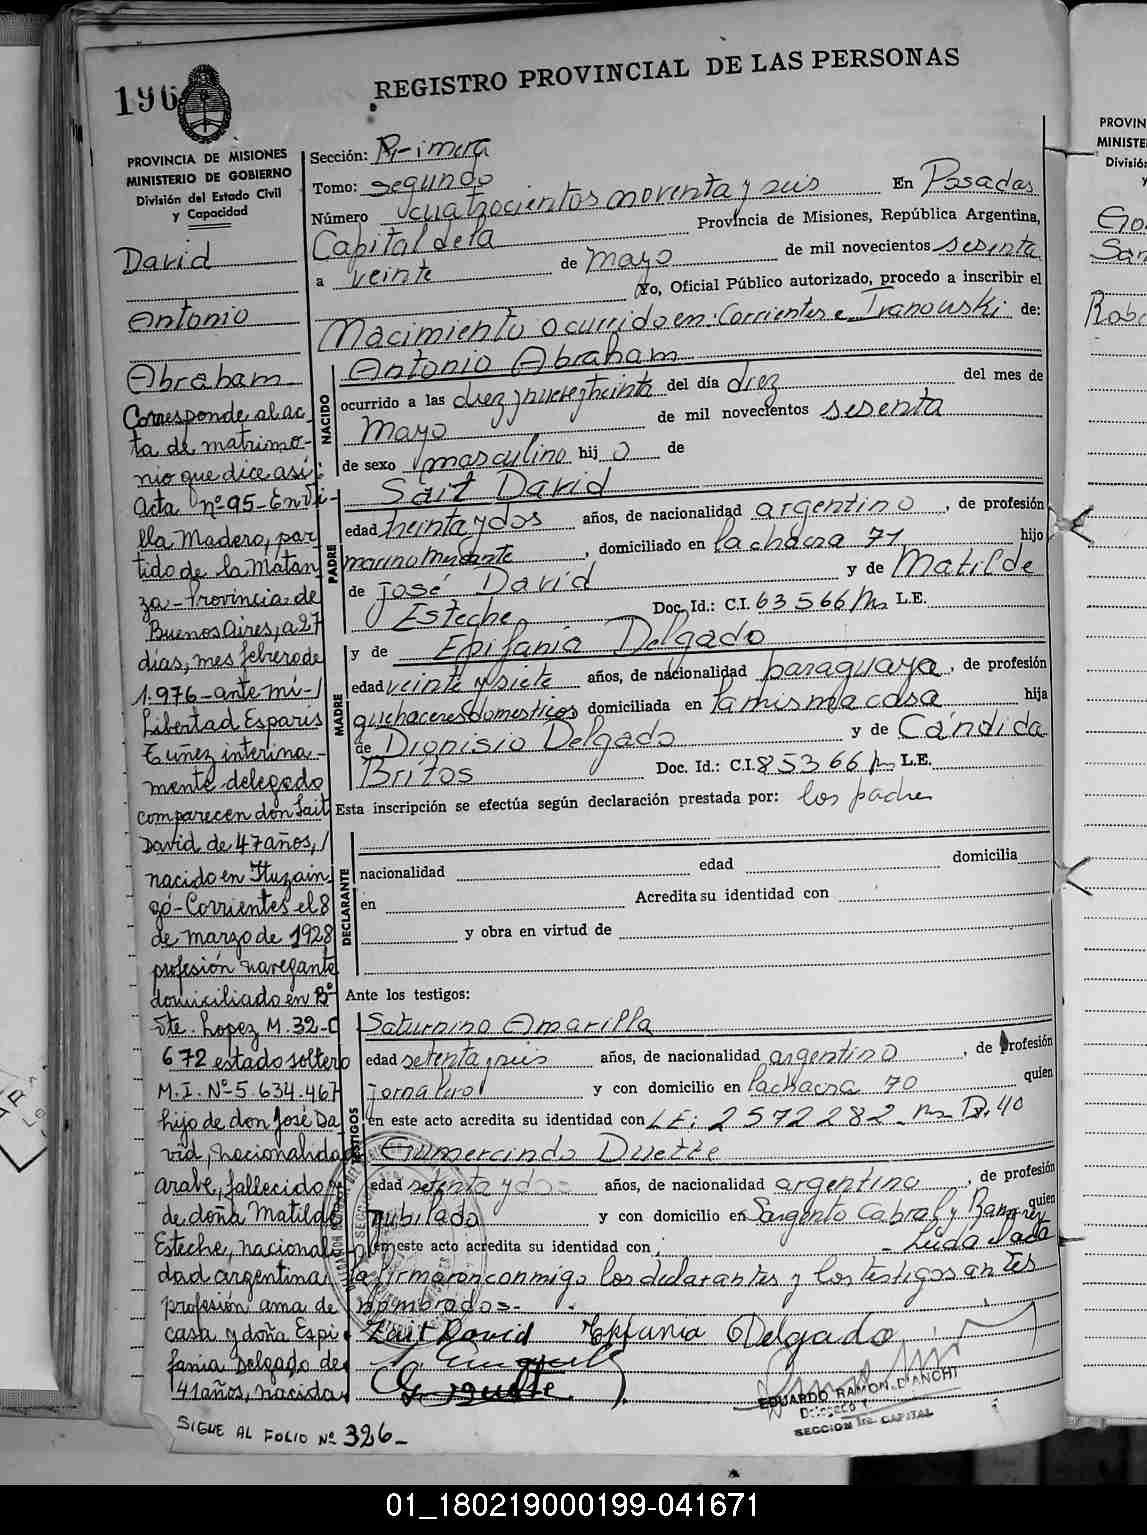 196
REGISTRO PROVINCIAL DE LAS PERSONAS
PROVINCIA DE MISIONES
MINISTERIO DE GOBIERNO
División del Estado Civil
y Capacidad
David
Antonio
Abraham
Corresponde al ac
ta de matrimo-
nio que dice así:
Acta nº 95-En Vi-
lla Madero, par
tido de la Matan
za-Provincia de
Buenos Aires, a 27
días, mes febrero de
1.976-ante mí-/
Libertad Esparis
Tuñez interina-
mente delegado
comparecen don Sait
David de 47 años, /
nacido en Ituzain
gó-Corrientes el 8
de marzo de 1928
profesión navegante
domiciliado en Bº
Ste. Lopez M. 32-C
672 estado soltero
M.I. Nº 5.634.467
hijo de don José Da
vid, nacionalidad
arabe, fallecido y
de doña Matilde
Esteche, nacionali-
dad argentina,
profesión ama de
casa y doña Epi
fania Delgado de
41 años, nacida
SIGUE AL FOLIO Nº 326-
Sección: Primera
Tomo: segundo
Número cuatrocientos noventa y seis En Posadas
Capital de la Provincia de Misiones, República Argentina,
a veinte de mayo de mil novecientos sesenta
Yo, Oficial Público autorizado, procedo a inscribir el
Nacimiento ocurrido en: Corrientes e Ivanowski de:
NACIDO
Antonio Abraham
ocurrido a las diez y nueve y treinta del día diez del mes de
Mayo de mil novecientos sesenta
de sexo masculino hij o de
PADRE
Sait David
edad treinta y dos años, de nacionalidad argentino, de profesión
marino mercante, domiciliado en la chacra 71 hijo
de José David y de Matilde
Esteche Doc. Id.: C.I. 63566 Ms L.E.
MADRE
y de Epifania Delgado
edad veinte y siete años, de nacionalidad paraguaya, de profesión
quehaceres domesticos domiciliada en la misma casa hija
de Dionisio Delgado y de Cándida
Britos Doc. Id.: C.I. 85366 Ms L.E.
Esta inscripción se efectúa según declaración prestada por: los padres
DECLARANTE
nacionalidad edad domicilia
en Acredita su identidad con
y obra en virtud de
Ante los testigos:
TESTIGOS
Saturnino Amarilla
edad setenta y seis años, de nacionalidad argentino, de profesión
jornalero y con domicilio en la chacra 70 quien
en este acto acredita su identidad con LE: 2572282 M D.40
Gumercindo Duette
edad setenta y dos años, de nacionalidad argentino, de profesión
jubilado y con domicilio en Sargento Cabral y Ramirez quien
en este acto acredita su identidad con - Leida
la firmaron conmigo los declarantes y los testigos antes
nombrados-
Zait David Epifania Delgado
EDUARDO RAMON D'ANCHI
Delegado
SECCION 1ra. CAPITAL
PROVIN
MINISTE
Divisió
y
01_180219000199-041671